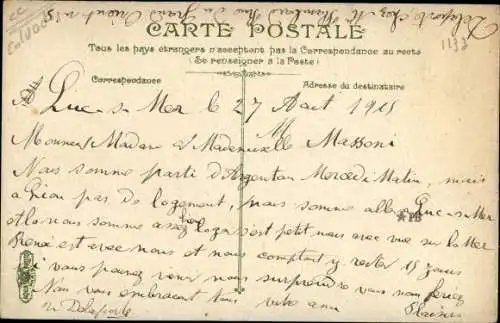 CARTE POSTALE
Tous les pays étrangers n'acceptent pas la Correspondance au recto
(Se renseigner à la Poste)
Correspondance
Adresse du destinataire
Luc s Mer le 27 Aout 1915
Monsieur Madame & Mademoiselle Massoni
Nous somme parti d'Argentan Mercredi Matin, mais
a pas de logement, nous somme aller a Luc s Mer
et la nous somme assez bien c'est petit nous avec vue sur la Mer
René est avec nous et nous comptont y rester 15 jours
si vous pouvez venir nous surprendre vous nous feriez
Plaisir
Nous vous embrassent tous votre ami
Delaporte
Delaporte chez Mr Rue du Grand Orient n 15
1172